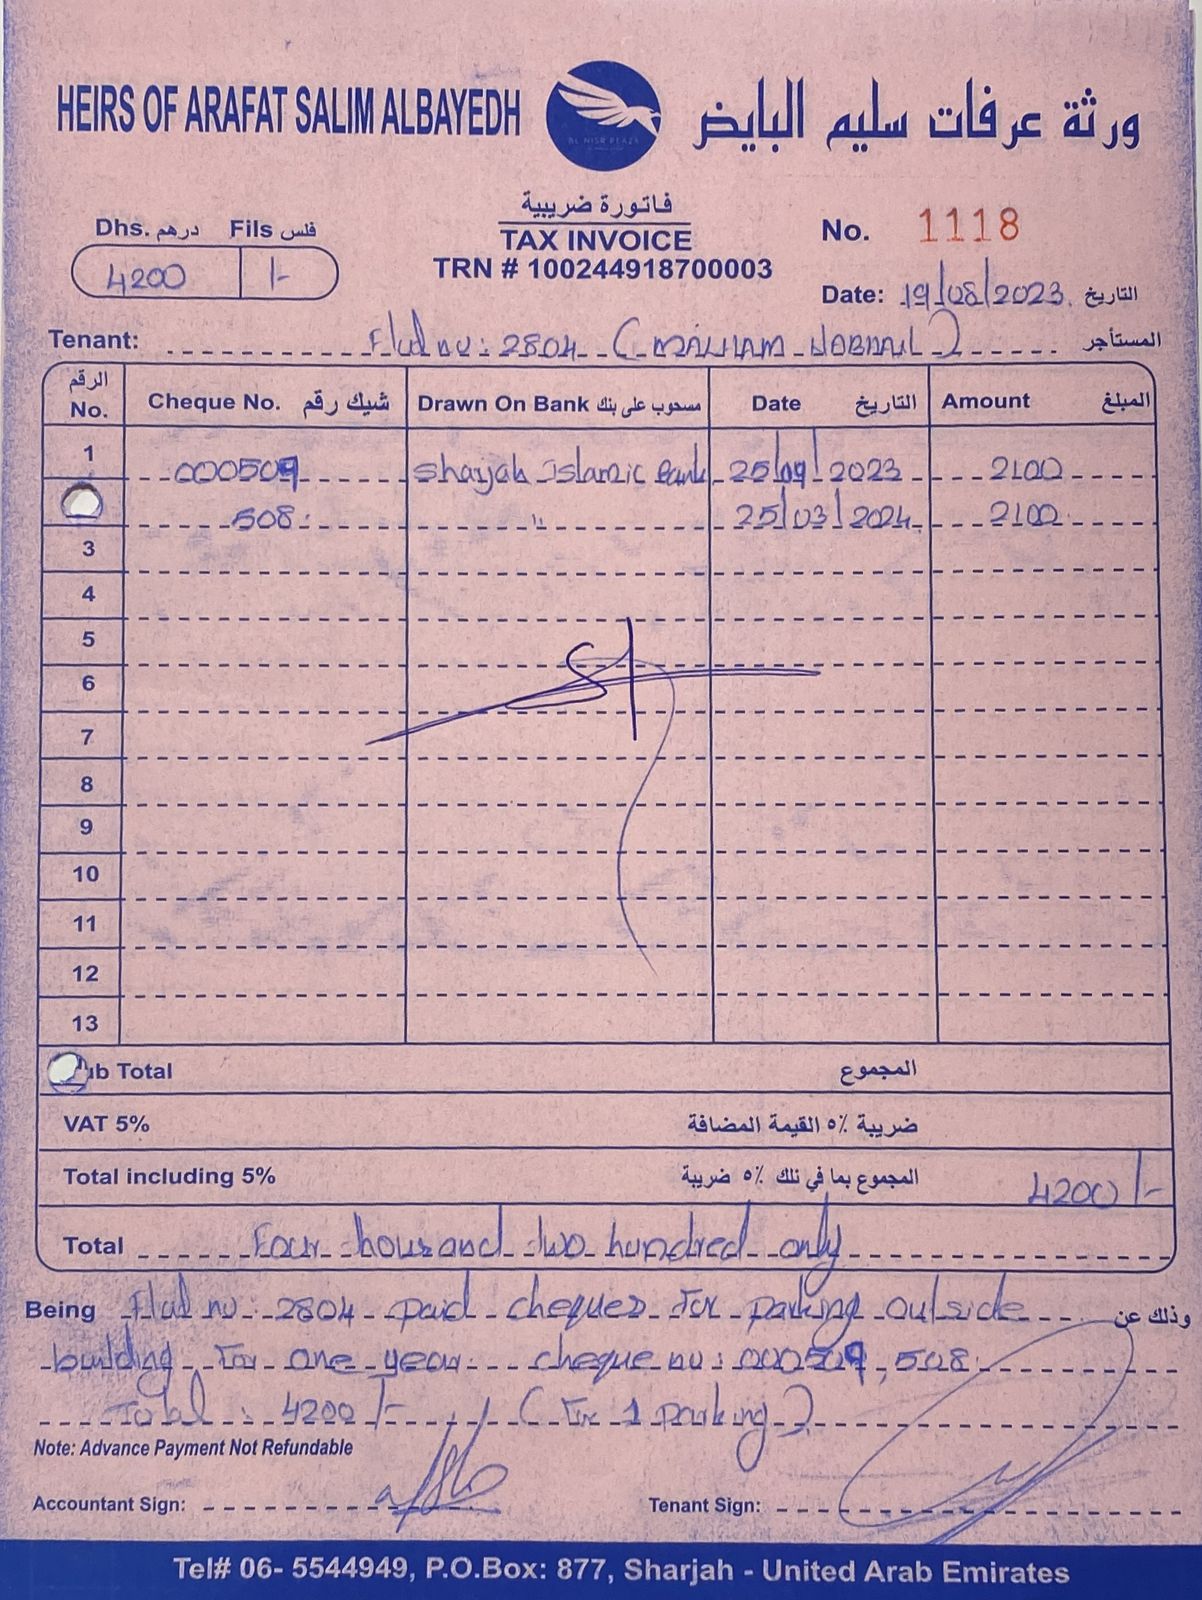 HEIRS OF ARAFAT SALIM ALBAYEDH
ورثة عرفات سليم البايض
AL NISR PLAZA
فاتورة ضريبية
TAX INVOICE
TRN # 100244918700003
Dhs. درهم Fils فلس
4200 /-
No. 1118
Date: 19/08/2023 التاريخ
Tenant: Flat no: 2804 ( ) المستأجر
الرقم No. Cheque No. شيك رقم Drawn On Bank مسحوب على بنك Date التاريخ Amount المبلغ
1 000509 Sharjah Islamic Bank 25/09/2023 2100
508 " 25/03/2024 2100
3
4
5
6
7
8
9
10
11
12
13
ub Total المجموع
VAT 5% ضريبة ٥٪ القيمة المضافة
Total including 5% المجموع بما في ذلك ٥٪ ضريبة 4200/-
Total Four thousand two hundred only
Being Flat no: 2804 paid cheques for parking outside وذلك عن
building for one year. cheque no: 000509, 508.
Total: 4200/- (For 1 parking)
Note: Advance Payment Not Refundable
Accountant Sign: Tenant Sign:
Tel# 06- 5544949, P.O.Box: 877, Sharjah - United Arab Emirates